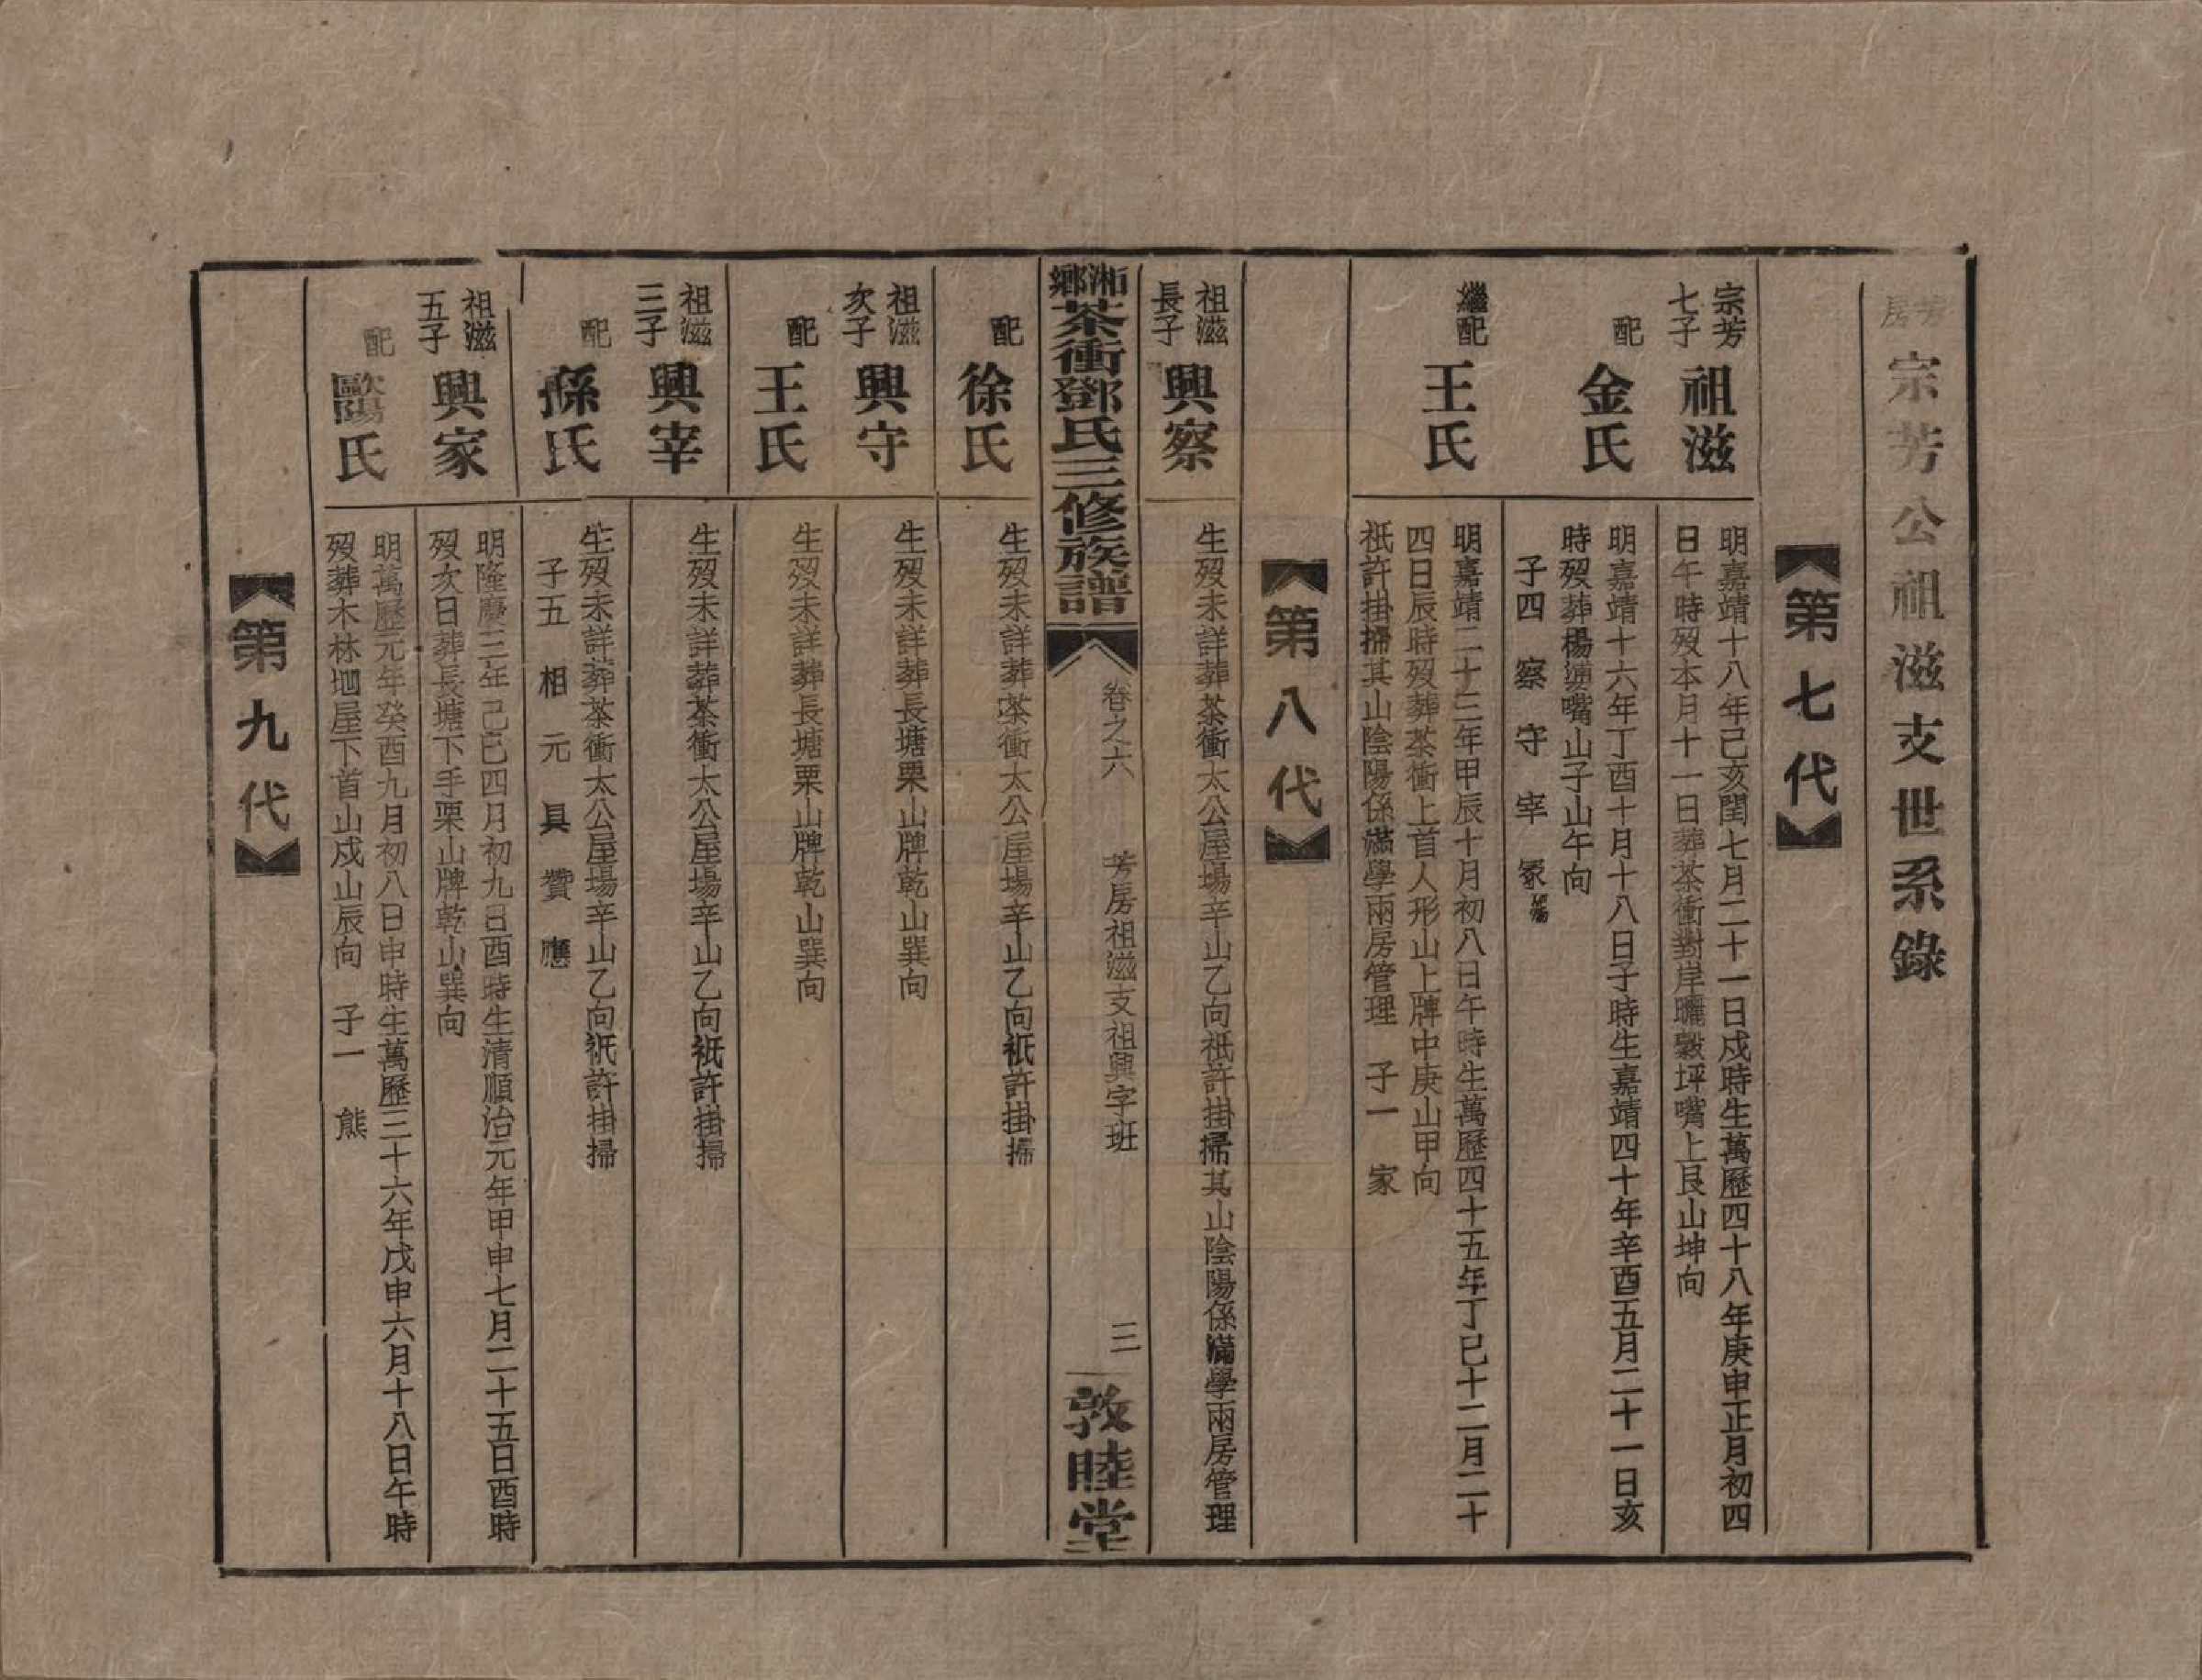 芳房 宗芳公祖滋支世系錄
第七代
宗芳七子 祖滋
明嘉靖十八年己亥閏七月二十一日戍時生萬歷四十八年庚申正月初四
日午時歿本月十一日葬茶衝對岸曬穀坪嘴上艮山坤向
配 金氏
明嘉靖十六年丁酉十月十八日子時生嘉靖四十年辛酉五月二十一日亥
時歿葬楊嘴山子山午向
子四 察 守 宰 冢
繼配 王氏
明嘉靖二十三年甲辰十月初八日午時生萬歷四十五年丁巳十二月二十
四日辰時歿葬茶衝上首人形山上牌中庚山甲向
祇許掛掃其山陰陽係滿學兩房管理 子一 家
第八代
祖滋長子 興察
生歿未詳葬茶衝太公屋場辛山乙向祇許掛掃其山陰陽係滿學兩房管理
湘鄉茶衝鄧氏三修族譜
卷之六 芳房祖滋支祖興字班 三
敦睦堂
配 徐氏
生歿未詳葬茶衝太公屋場辛山乙向祇許掛掃
祖滋次子 興守
生歿未詳葬長塘栗山牌乾山巽向
配 王氏
生歿未詳葬長塘栗山牌乾山巽向
祖滋三子 興宰
生歿未詳葬茶衝太公屋場辛山乙向祇許掛掃
配 孫氏
生歿未詳葬茶衝太公屋場辛山乙向祇許掛掃
子五 相 元 具 贊 應
祖滋五子 興家
明隆慶三年己巳四月初九日酉時生清順治元年甲申七月二十五日酉時
歿次日葬長塘下手栗山牌乾山巽向
配 歐陽氏
明萬歷元年癸酉九月初八日申時生萬歷三十六年戊申六月十八日午時
歿葬木林坳屋下首山戍山辰向 子一 熊
第九代